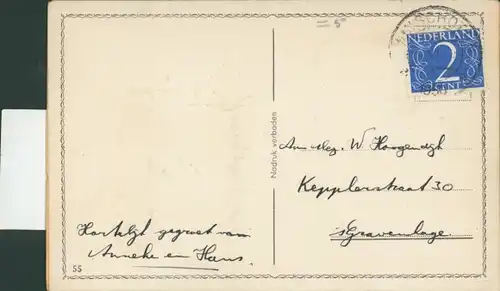 =5
NEDERLAND
2
CENT
Nadruk verboden
Aan W Hoogendijk
Kepplerstraat 30
's Gravenhage.
Hartelijk gegroet van
Anneke en Hans.
55